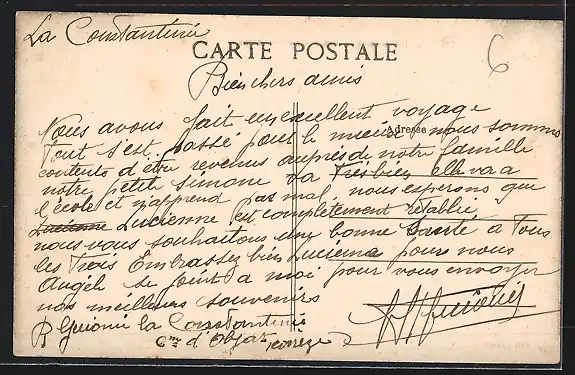 La Constantinie
6
CARTE POSTALE
Bien chers amis
Adresse
Nous avons fait un excellent voyage
Tout s'est passé pour le mieux nous sommes
contents d'être revenus auprès de notre famille
notre petite Simone va très bien elle va a
l'école et n'apprend pas mal nous esperons que
Lucienne Lucienne est complètement rétablie
nous vous souhaitons une bonne Santé a Tous
les Trois Embrassez bien Lucienne pour nous
Angèle se joint a moi pour vous envoyer
nos meilleurs souvenirs
la Constantinie
Cne d'Objat corrèze